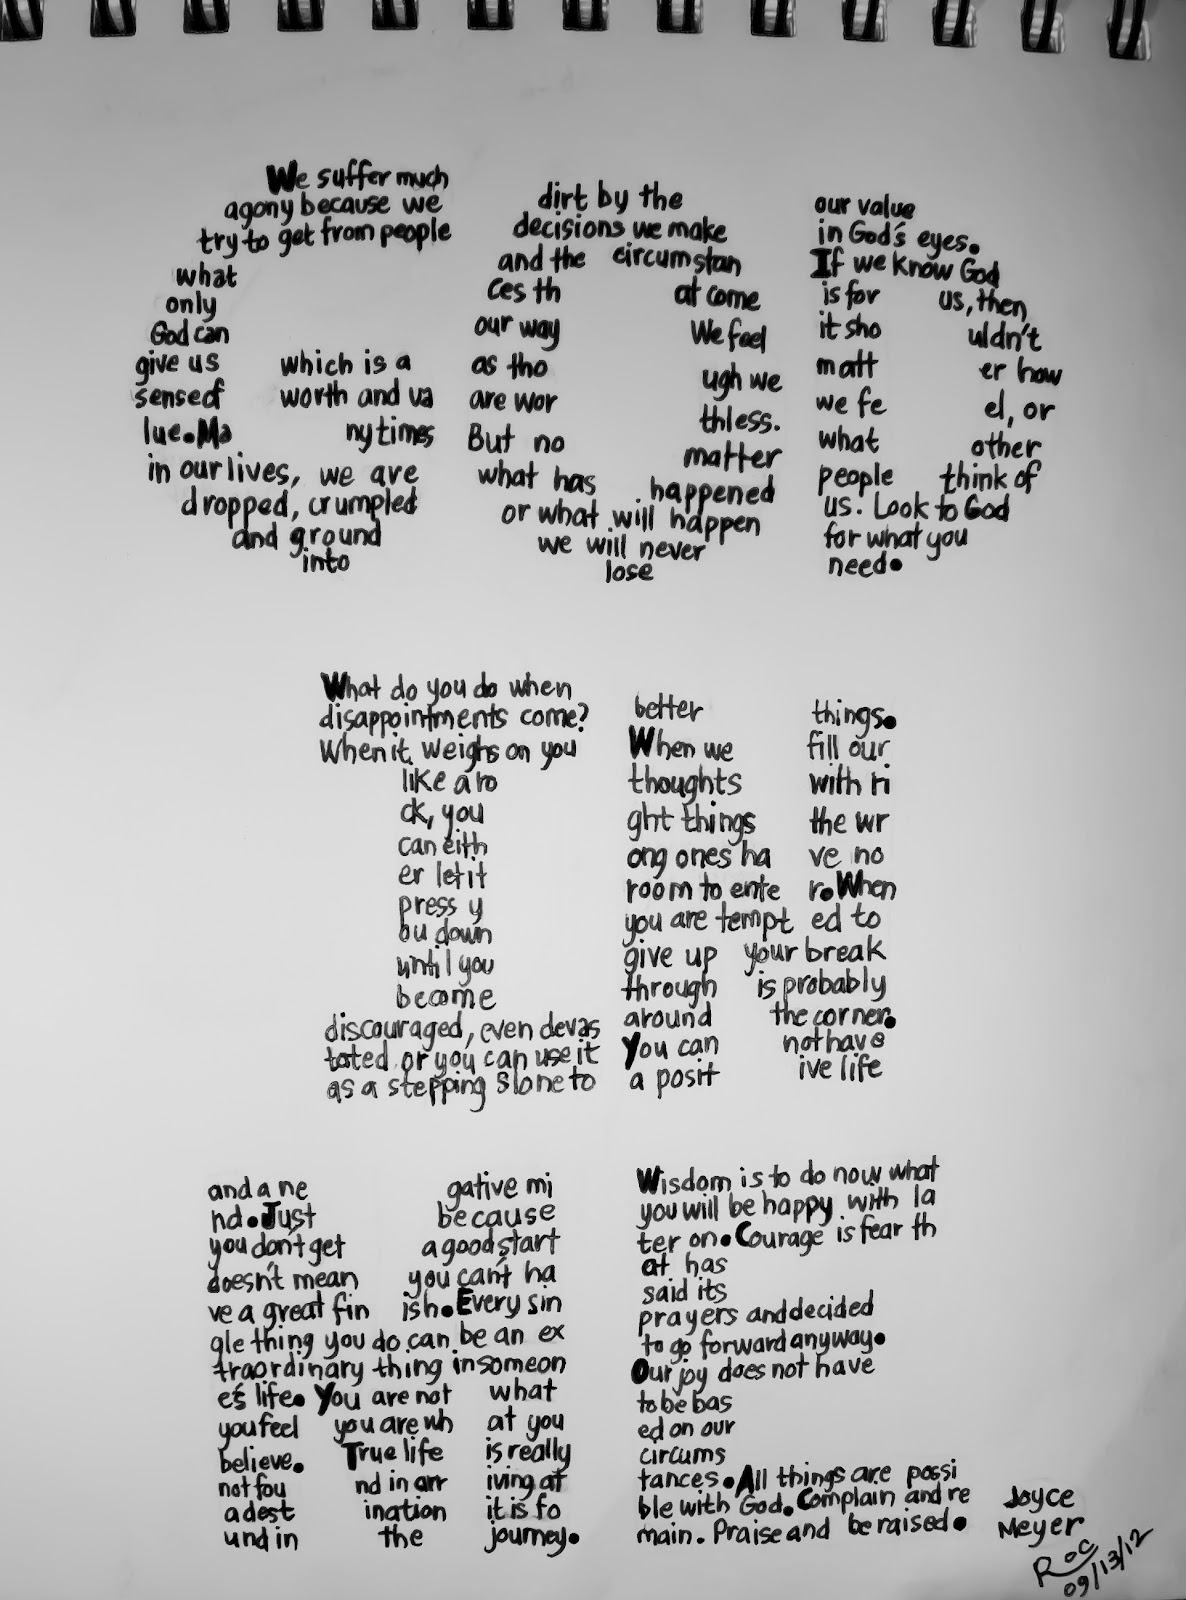 We suffer much
agony because we
try to get from people
what
only
God can
give us which is a
sense of worth and va
lue. Ma ny times
in our lives, we are
dropped, crumpled
and ground
into
dirt by the
decisions we make
and the circumstan
ces th at come
our way We feel
as tho ugh we
are wor thless.
But no matter
what has happened
or what will happen
we will never
lose
our value
in God's eyes.
If we know God
is for us, then,
it sho uldn't
matt er how
we fe el, or
what other
people think of
us. Look to God
for what you
need.
What do you do when
disappointments come?
When it weighs on you
like a ro
ck, you
can eith
er let it
press y
ou down
until you
become
discouraged, even devas
tated or you can use it
as a stepping stone to
better things.
When we fill our
thoughts with ri
ght things the wr
ong ones ha ve no
room to ente r. When
you are tempt ed to
give up your break
through is probably
around the corner.
You can not have
a posit ive life
and a ne gative mi
nd. Just because
you don't get a good start
doesn't mean you can't ha
ve a great fin ish. Every sin
gle thing you do can be an ex
traordinary thing in someon
e's life. You are not what
you feel you are wh at you
believe. True life is really
not fou nd in arr iving at
a dest ination it is fo
und in the journey.
Wisdom is to do now what
you will be happy with la
ter on. Courage is fear th
at has
said its
prayers and decided
to go forward anyway.
Our joy does not have
to be bas
ed on our
circums
tances. All things are possi
ble with God. Complain and re
main. Praise and be raised.
Joyce
Meyer
Roc
09/13/12